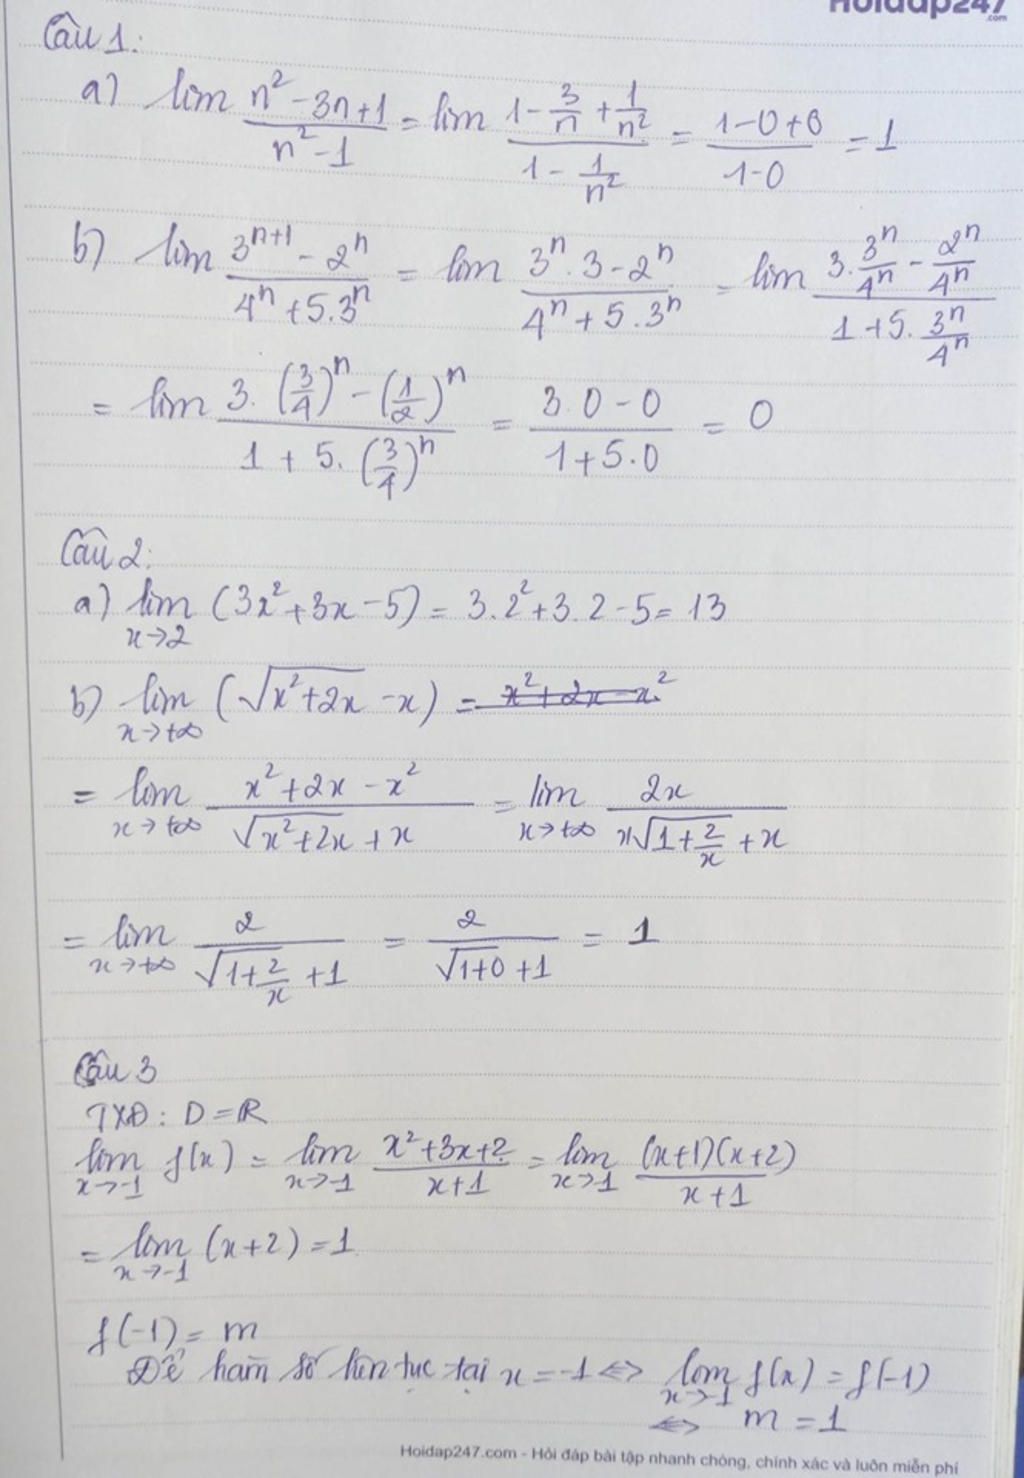 Hoidap247
.com
Câu 1:
a) lim (n² - 3n + 1)/(n² - 1) = lim (1 - 3/n + 1/n²)/(1 - 1/n²) = (1 - 0 + 0)/(1 - 0) = 1
b) lim (3ⁿ⁺¹ - 2ⁿ)/(4ⁿ + 5.3ⁿ) = lim (3ⁿ.3 - 2ⁿ)/(4ⁿ + 5.3ⁿ) = lim (3.3ⁿ/4ⁿ - 2ⁿ/4ⁿ)/(1 + 5.3ⁿ/4ⁿ)
= lim (3.(3/4)ⁿ - (1/2)ⁿ)/(1 + 5.(3/4)ⁿ) = (3.0 - 0)/(1 + 5.0) = 0
Câu 2:
a) lim x→2 (3x² + 3x - 5) = 3.2² + 3.2 - 5 = 13
b) lim x→+∞ (√(x² + 2x) - x) = x² + 2x - x²
= lim x→+∞ (x² + 2x - x²)/(√(x² + 2x) + x) = lim x→+∞ 2x/(x√(1 + 2/x) + x)
= lim x→+∞ 2/(√(1 + 2/x) + 1) = 2/(√(1+0) + 1) = 1
Câu 3
TXĐ: D = R
lim x→-1 f(x) = lim x→-1 (x² + 3x + 2)/(x + 1) = lim x→1 (x+1)(x+2)/(x + 1)
= lim x→-1 (x+2) = 1
f(-1) = m
Để hàm số liên tục tại x = -1 <=> lim x→-1 f(x) = f(-1)
<=> m = 1
Hoidap247.com - Hỏi đáp bài tập nhanh chóng, chính xác và luôn miễn phí